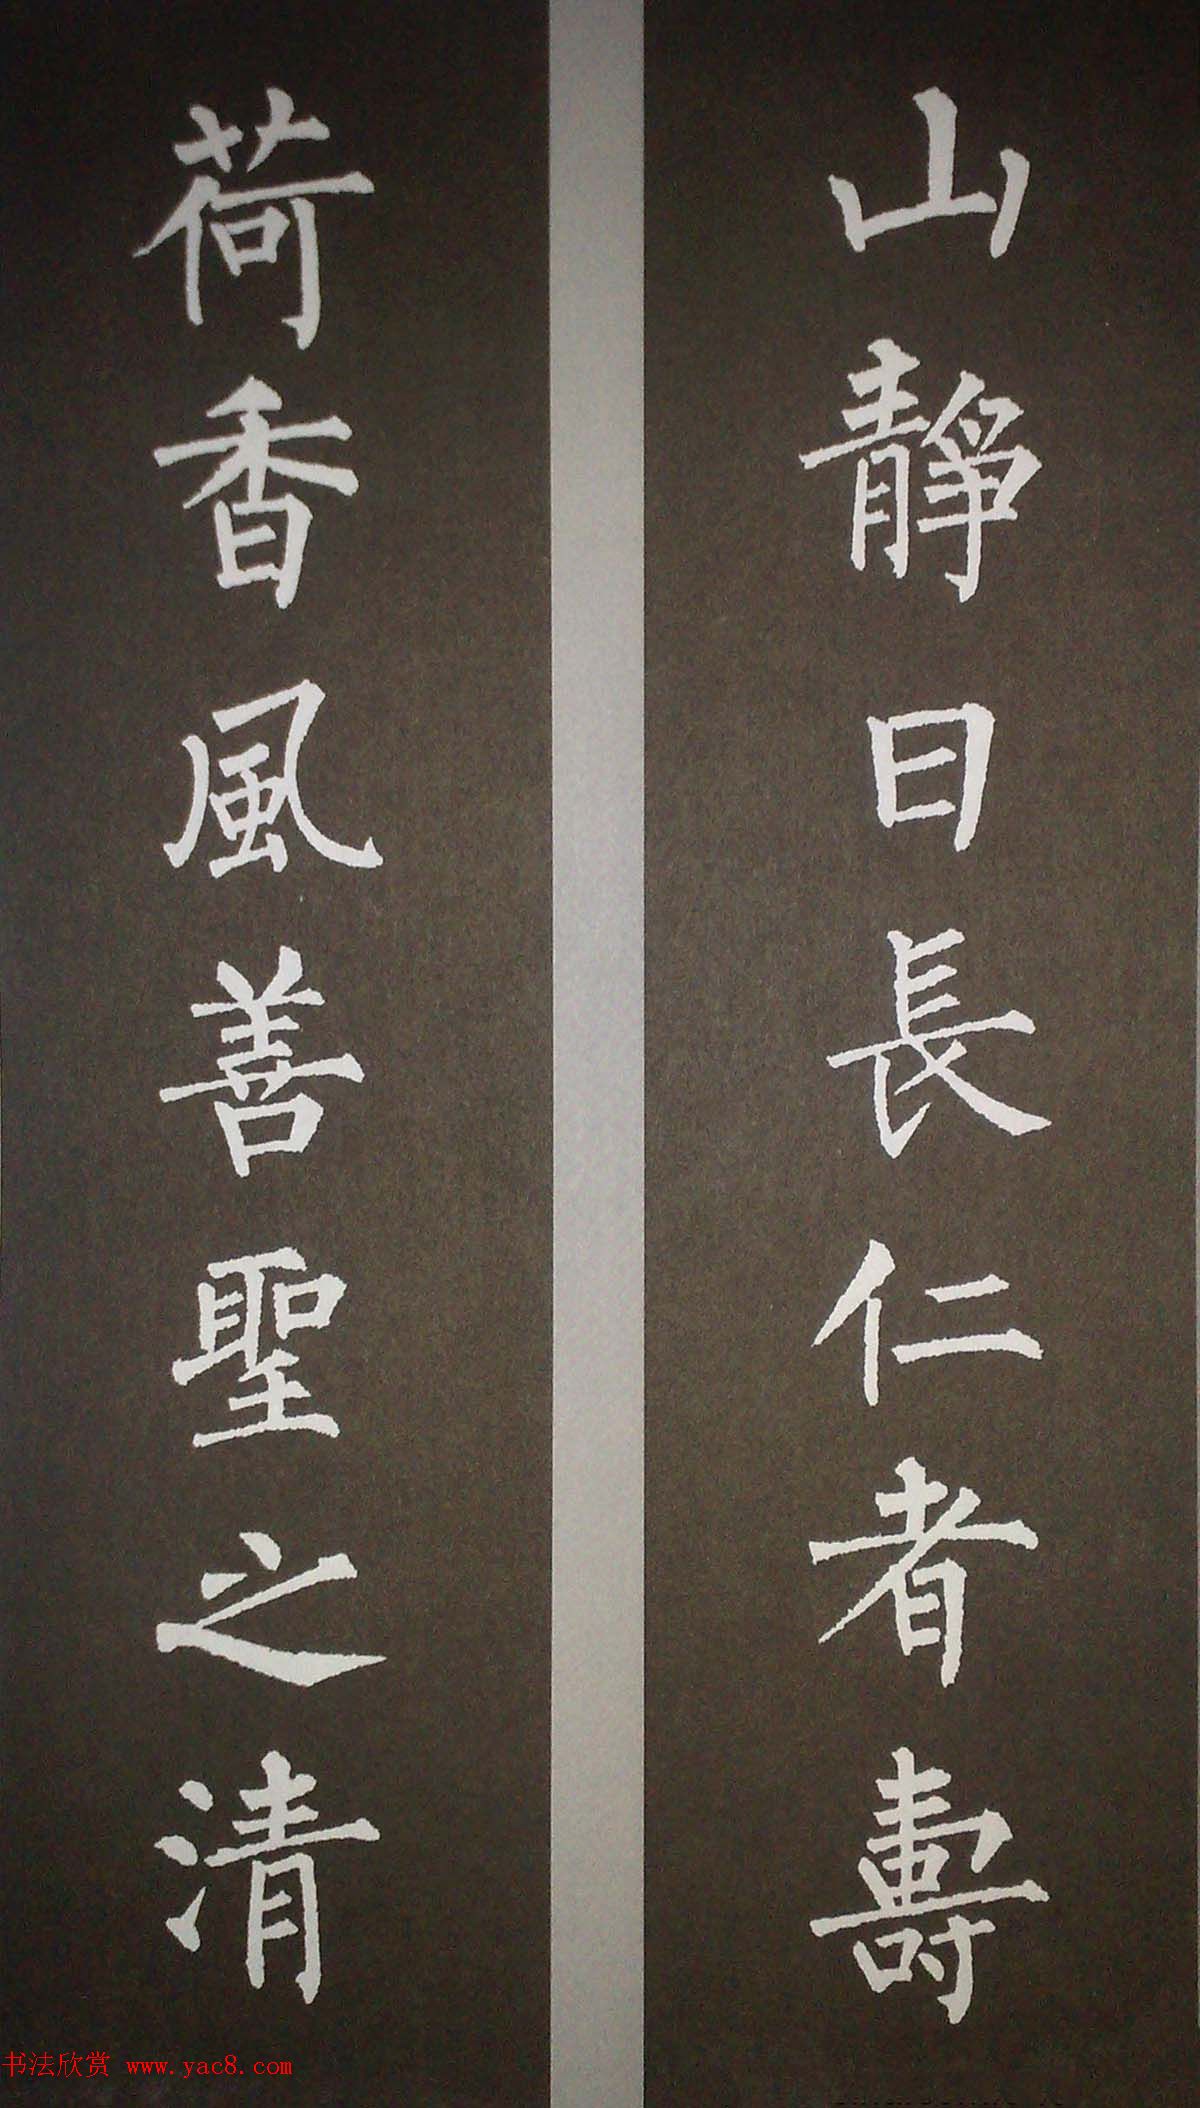 山靜日長仁者壽
荷香風善聖之清
书法欣赏 www.yac8.com